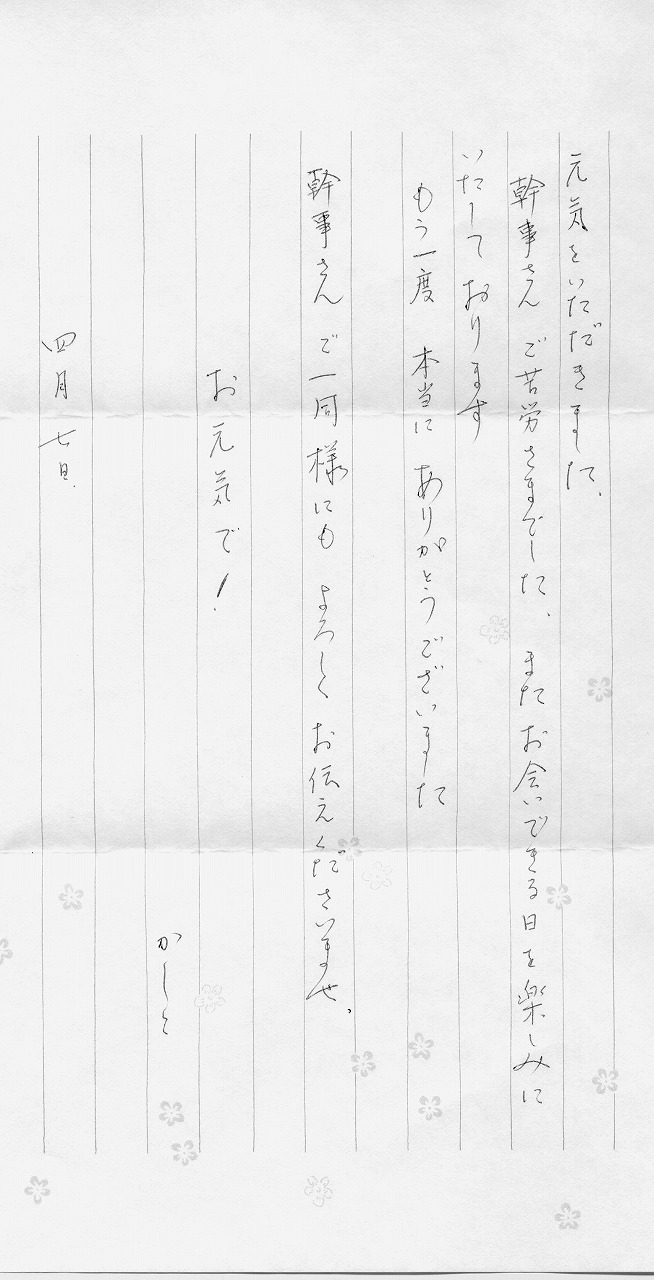 元気をいただきました、
幹事さん ご苦労さまでした、 またお会いできる日を楽しみに
いたして おります
もう一度 本当に ありがとうございました
幹事さん ご一同様にも よろしく お伝えくださいませ、
お元気で!
かしこ
四月七日、